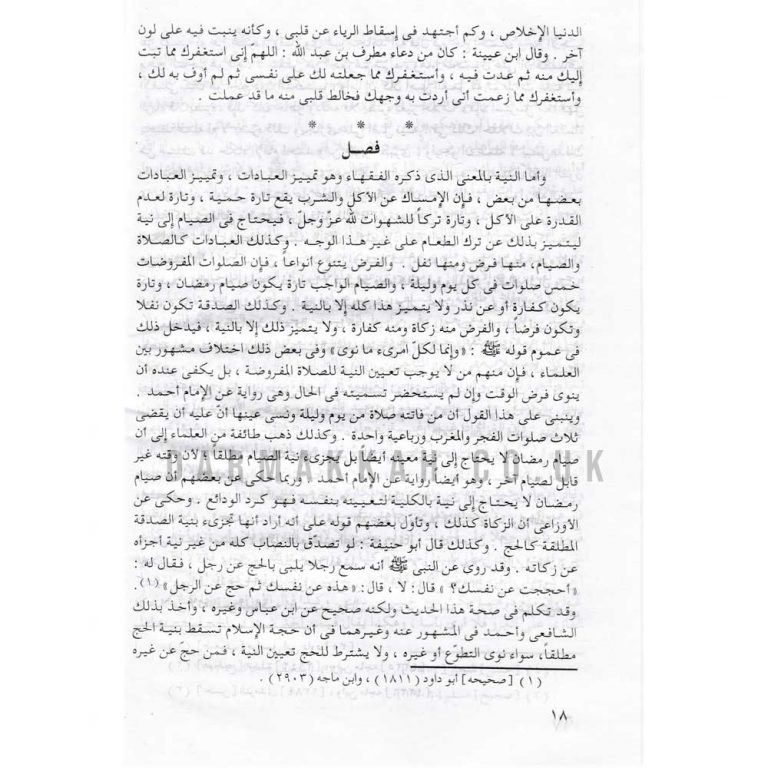 الدنيا الإخلاص ، وكم أجتهد فى إسقاط الرياء عن قلبى ، وكأنه ينبت فيه على لون
آخر . وقال ابن عيينة : كان من دعاء مطرف بن عبد الله : اللهمّ إنى استغفرك مما تبت
إليك منه ثم عدت فيه ، وأستغفرك مما جعلته لك على نفسى ثم لم أوف به لك ،
وأستغفرك مما زعمت أنى أردت به وجهك فخالط قلبى منه ما قد عملت .
* * *
فصل
وأما النية بالمعنى الذى ذكره الفقهاء وهو تمييز العبادات ، وتمييز العبادات
بعضها من بعض ، فإن الإمساك عن الأكل والشرب يقع تارة حمية ، وتارة لعدم
القدرة على الأكل ، وتارة تركاً للشهوات لله عزّ وجلّ ، فيحتاج فى الصيام إلى نية
ليتميز بذلك عن ترك الطعام على غير هذا الوجه . وكذلك العبادات كالصلاة
والصيام، منها فرض ومنها نفل . والفرض يتنوع أنواعاً ، فإن الصلوات المفروضات
خمس صلوات فى كل يوم وليلة ، والصيام الواجب تارة يكون صيام رمضان ، وتارة
يكون كفارة أو عن نذر ولا يتميز هذا كله إلا بالنية . وكذلك الصدقة تكون نفلا
وتكون فرضاً ، والفرض منه زكاة ومنه كفارة ، ولا يتميز ذلك إلا بالنية ، فيدخل ذلك
فى عموم قوله ﷺ : «وإنما لكلّ امرىء ما نوى» وفى بعض ذلك اختلاف مشهور بين
العلماء ، فإن منهم من لا يوجب تعيين النية للصلاة المفروضة ، بل يكفى عنده أن
ينوى فرض الوقت وإن لم يستحضر تسميته فى الحال وهى رواية عن الإمام أحمد .
وينبنى على هذا القول أن من فاتته صلاة من يوم وليلة ونسى عينها أنّ عليه أن يقضى
ثلاث صلوات الفجر والمغرب ورباعية واحدة . وكذلك ذهب طائفة من العلماء إلى أن
صيام رمضان لا يحتاج إلى نية معينة أيضاً بل تجزىء نية الصيام مطلقاً ؛ لأن وقته غير
قابل لصيام آخر ، وهو أيضاً رواية عن الإمام أحمد ، وربما حكى عن بعضهم أن صيام
رمضان لا يحتاج إلى نية بالكلية لتعيينه بنفسه فهو كرد الودائع . وحكى عن
الأوزاعى أن الزكاة كذلك ، وتأوّل بعضهم قوله على أنه أراد أنها تجزىء بنية الصدقة
المطلقة كالحج . وكذلك قال أبو حنيفة : لو تصدّق بالنصاب كله من غير نية أجزأه
عن زكاته . وقد روى عن النبى ﷺ أنه سمع رجلا يلبى بالحج عن رجل ، فقال له :
«أحججت عن نفسك؟ » قال: لا ، قال: «هذه عن نفسك ثم حج عن الرجل» (١) .
وقد تكلم فى صحة هذا الحديث ولكنه صحيح عن ابن عباس وغيره ، وأخذ بذلك
الشافعى وأحمد فى المشهور عنه وغيرهما فى أن حجة الإسلام تسقط بنية الحج
مطلقاً، سواء نوى التطوّع أو غيره ، ولا يشترط للحج تعيين النية ، فمن حجّ عن غيره
(١) [صحيحه] أبو داود (١٨١١) ، وابن ماجه (٢٩٠٣) .
١٨
DARMAKKAH.CO.UK